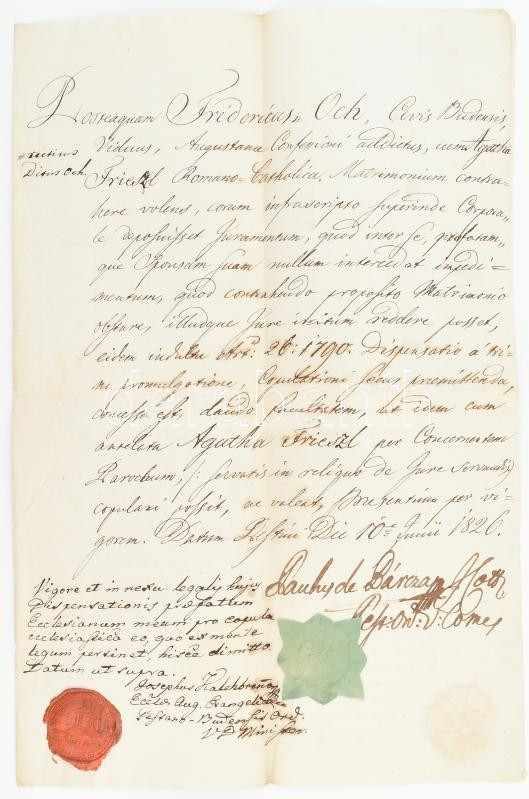 Posteaquam Fridericus Och, Civis Budensis,
Viduus, Augustanæ Confessioni addictus, cum Agatha
Frieszl Romano-Catholica, Matrimonium contra-
here volens, coram infrascripto superinde Corpora-
le deposuisset Juramentum, quod inter se,
que Sponsam suam nullum intercedat impedi-
mentum, quod contrahendo proposito Matrimonio
obstare, illudque Jure irritum reddere posset,
eidem indultu Art: 26: 1790. Dispensatio a tri-
na promulgatione, Copulationi secus præmittenda,
concessa est, dando facultatem, ut idem cum
antelata Agatha Frieszl per Concernentem
Parochum, /: servatis in reliquo de Jure servandis
copulari possit, ac valeat, Præsentium per vi-
gorem. Datum Pestini Die 10a Junii 1826.
Dictus Och.
Vigore et in nexu legalis hujus
Dispensationis præfattum
Ecclesianum meum pro copula
ecclesiastica eo, quo ex mente
legum pertinet, hisce dimitto.
Datum ut supra.
Josephus
Eccles Aug. Evangelicæ
Pestano-Budensis Ord.
V D Minister.
de